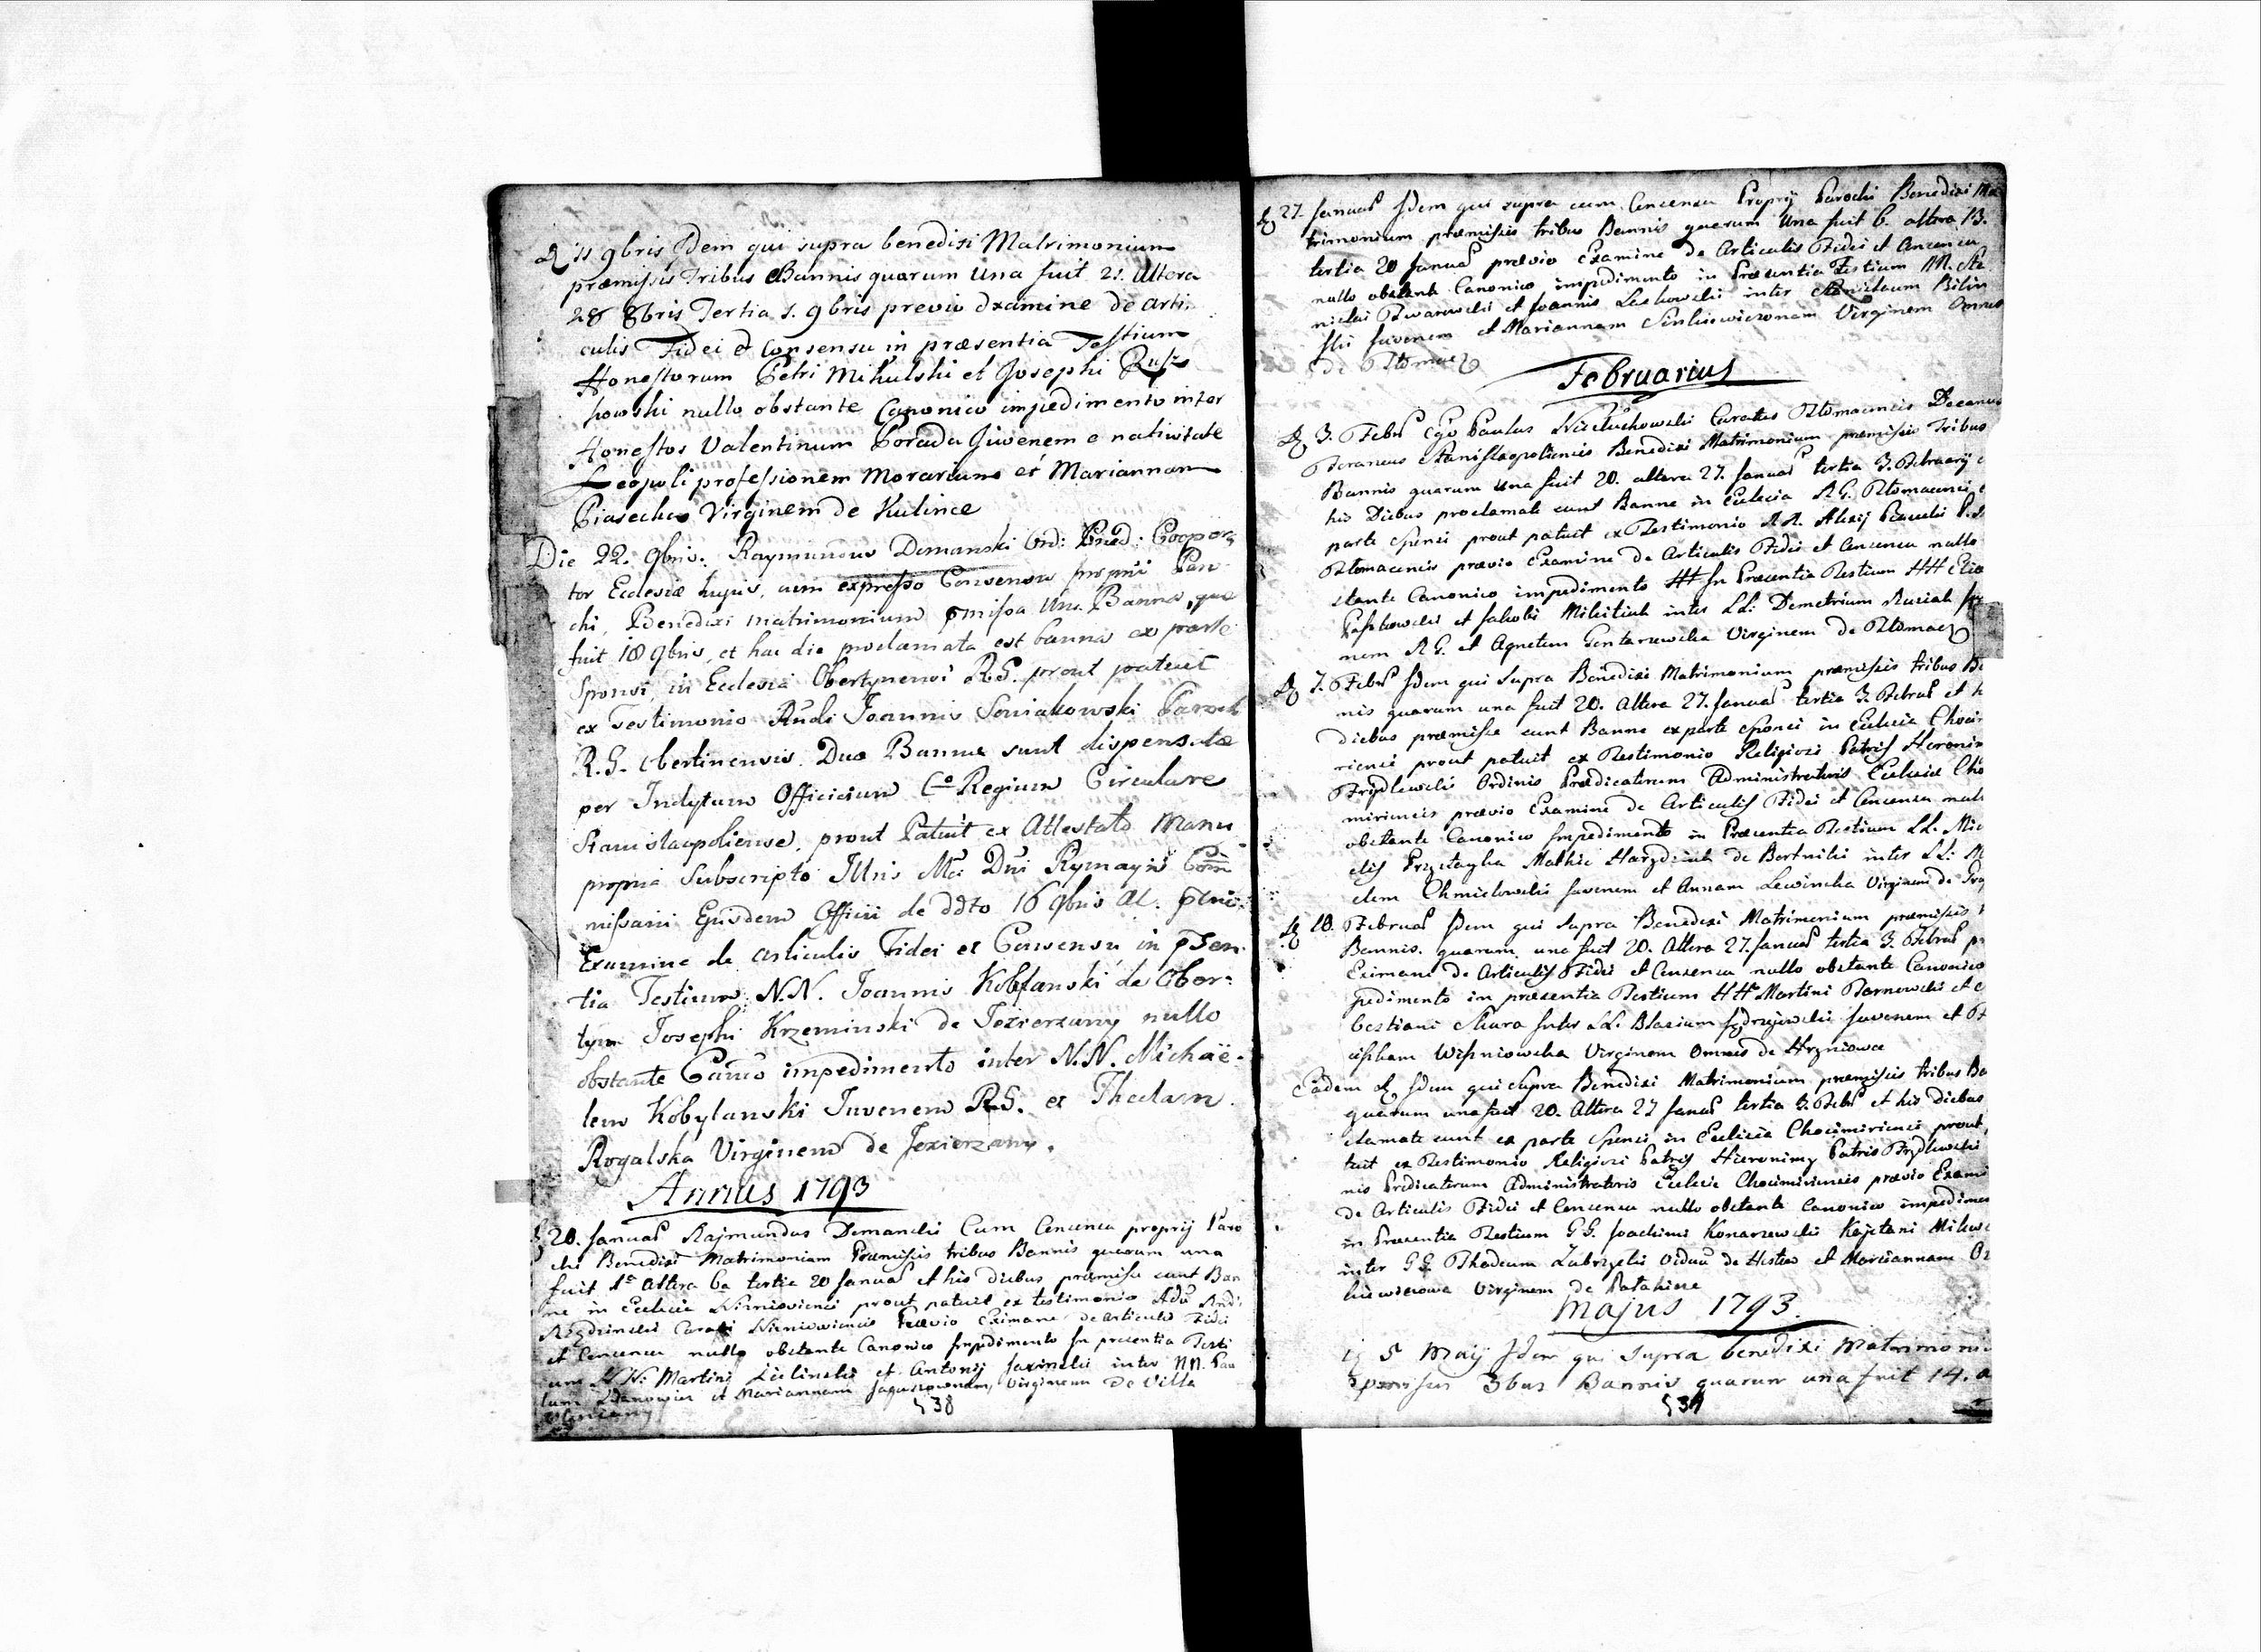 D 11 9bris Idem qui supra benedixi Matrimonium
præmissis Tribus Bannis quarum una fuit 21. Altera
28 8bris Tertia 1. 9bris previo Examine de Arti
culis Fidei et Consensu in præsentia Testium
Honestorum Petri Mikulski et Josephi
kowski nullo obstante Canonico impedimento inter
Honestos Valentinum Porada Juvenem e nativitate
Leopoli professionem Morarium et Mariannam
Piasecka Virginem de Kulince
Die 22. 9bris. Raymundus Domanski Ord: Præd: Coopera
tor Ecclesiæ hujus, cum expresso Consensu proprii Paro
chi, Benedixi matrimonium pmissa Una Banna, quæ
fuit 18 9bris, et hac die proclamata est banna ex parte
Sponsi, in Ecclesia Obertynensi R.G. prout patuit
ex Testimonio Rndi Joannis Soniakowski Paroch
R.G. Obertinensis. Duæ Bannæ sunt dispensatæ
per Inclytum Officium C. Regium Circulare
Stanislaopoliense, prout Patuit ex Attestato Manu
propria Subscripto Illris Mci Dni Rymayn Com
missarii Ejusdem Officii de ddto 16 9bris
Examine de articulis Fidei et Consensu, in psen
tia Testium: N.N. Joannis Kobylanski de Ober:
tyn Josephi Krzeminski de Jezierzany nullo
obstante Canco impedimento inter N.N. Michaë-
lem Kobylanski Juvenem R.G. et Theclam
Rogalska Virginem de Jezierzany.
Annus 1793
D 20. Januar Rajmundus Domanski Cum Censensu proprij Paro
chi Benedixi Matrimonium Præmissis tribus Bannis quarum una
fuit 1a altera 6a tertia 20 Januar et his diebus præmissæ sunt Ban
næ in Eclesia prout patuit ex testimonio
Curati Prævio Eximane de articulis Fidei
et Censensu nullo obstante Canonico Impedimento In presentia Testi
um NN: Martini et Antonij inter NN. Pau
lum et Mariannam Virginem de Villa
538
D 27. Januar Idem qui supra cum Censensu Proprij Parochi Benedixi Ma
trimonium præmissis tribus Bannis quarum Una fuit 6. altera 13.
tertia 20 Januar prævio Examine de Articulis Fidei et Censensu
nullo obstante Canonico impedimento in Præsentia Testium NN. Sta
nislai et Joannis inter Stanislaum Bilin
ski Juvenem et Mariannam Virginem Omnes
de Tłomacz
Februarius
D 3. Febr Ego Paulus Curatus Tłomacensis Decanus
Foraneus Stanislaopoliensis Benedixi Matrimonium præmissis Tribus
Bannis quarum Una fuit 20. altera 27. Januar tertia 3. Februarij
his Diebus proclamatæ sunt Bannæ in Eclesia R.G. Tłomacensi
parte Sponsi prout patuit ex Testimonio
Tłomacensis prævio Examine de Articulis Fidei et Censensu nullo
stante Canonico impedimento In Præsentia Testium HH
et Jakobi inter LL: Demetrium
nem R.G. et Virginem de Tłomacz
D 7. Febr Idem qui Supra Benedixi Matrimonium præmissis tribus Ba
nis quarum una fuit 20. Altera 27. Januar tertia 3. Februar et h
diebus præmissæ sunt Bannæ ex parte Sponsi in Eclesia Choci
riensi prout patuit ex Testimonio Religiosi Patris Heronim
Frydlewski Ordinis Prædicatorum Administratoris Eclesiæ Cho
miriensis prævio Examine de Articulis Fidei et Censensu null
obstante Canonico Impedimento in Præsentia Testium LL. Mic
elis Mathie de Bortniki inter LL: M
elem Chmielowski Juvenem et Annam Lewincka Virginem de
D 10. Februar Idem qui Supra Benedixi Matrimonium præmissis
Bannis. quarum una fuit 20. Altera 27. Januar tertia 3. Febrar
Eximane de Articulis Fidei et Censensu nullo obstante Canonico
pedimento in præsentia Testium HH Martini Tarnowski et
bestiani Skura Inter LL. Blasium Juvenem et
ciskam Wiśniowska Virginem Omnes de
Eadem D Idem qui Supra Benedixi Matrimonium præmissis tribus Ba
quarum una fuit 20. Altera 27 Januar tertia 3. Febr et his diebus
clamatæ sunt ex parte Sponsi in Eclesia Chocimiriensi prout
tuit ex Testimonio Religiosi Patris Hieronimy Patris Frydlewski
nis Predicatorum Administratoris Eclesiæ Chocimiriensis prævio Exami
de Articulis Fidei et Censensu nullo obstante Canonico impedimen
in Præsentia Testium GG. Joachimi Konarzewski Kajetani
inter GG. Thadeum et Mariannam
Virginem de Patahicze
Majus 1793.
5 Maij Idem qui Supra benedixi Matrimoni
pmissis 3bus Bannis quarum una fuit 14.
539